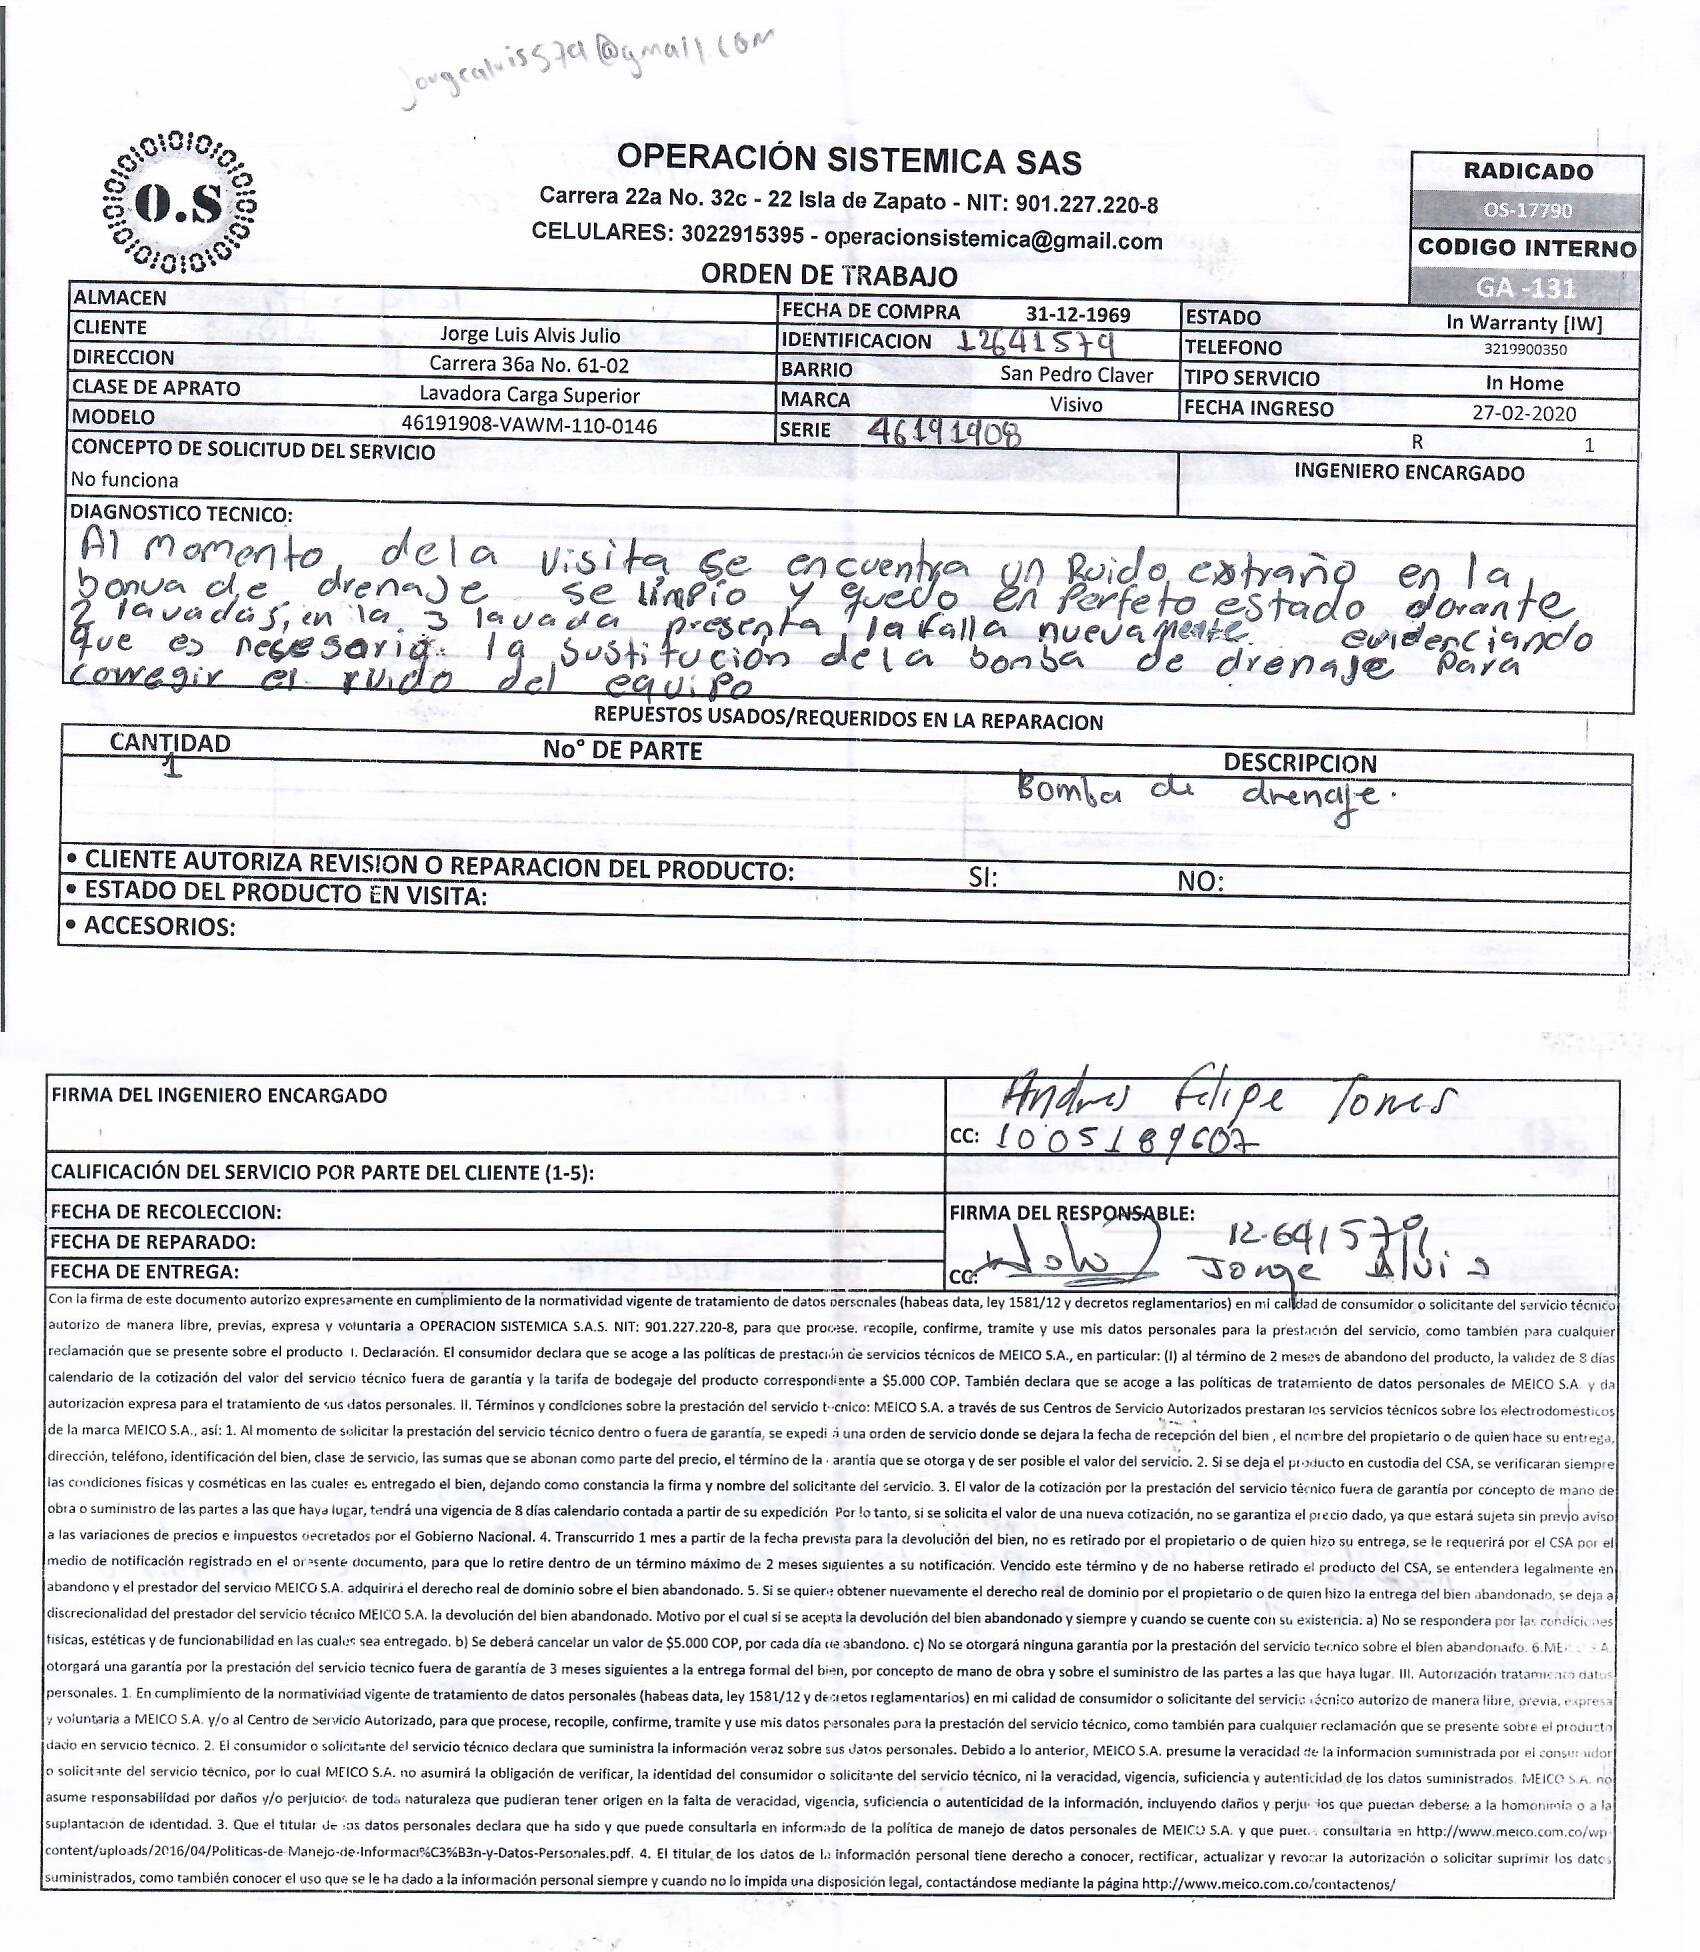 jorgealvis579@gmail.com
O.S
OPERACIÓN SISTEMICA SAS
Carrera 22a No. 32c - 22 Isla de Zapato - NIT: 901.227.220-8
CELULARES: 3022915395 - operacionsistemica@gmail.com
ORDEN DE TRABAJO
RADICADO
OS-17790
CODIGO INTERNO
GA -131
ALMACEN
FECHA DE COMPRA 31-12-1969
ESTADO In Warranty [IW]
CLIENTE Jorge Luis Alvis Julio
IDENTIFICACION 12641579
TELEFONO 3219900350
DIRECCION Carrera 36a No. 61-02
BARRIO San Pedro Claver
TIPO SERVICIO In Home
CLASE DE APRATO Lavadora Carga Superior
MARCA Visivo
FECHA INGRESO 27-02-2020
MODELO 46191908-VAWM-110-0146
SERIE 46191908
R 1
CONCEPTO DE SOLICITUD DEL SERVICIO
INGENIERO ENCARGADO
No funciona
DIAGNOSTICO TECNICO:
Al momento dela visita se encuentra un Ruido extraño en la
bonva de drenaje se limpio y quedo en Perfeto estado dorante
2 lavadas, en la 3 lavada presenta la falla nuevamente evidenciando
que es necesario la sustitución dela bomba de drenaje para
corregir el ruido del equipo
REPUESTOS USADOS/REQUERIDOS EN LA REPARACION
CANTIDAD No° DE PARTE DESCRIPCION
1 Bomba de drenaje.
• CLIENTE AUTORIZA REVISION O REPARACION DEL PRODUCTO: SI: NO:
• ESTADO DEL PRODUCTO EN VISITA:
• ACCESORIOS:
FIRMA DEL INGENIERO ENCARGADO
Andres Felipe Torres
CC: 1005189607
CALIFICACIÓN DEL SERVICIO POR PARTE DEL CLIENTE (1-5):
FECHA DE RECOLECCION:
FIRMA DEL RESPONSABLE:
FECHA DE REPARADO:
12.641579
FECHA DE ENTREGA:
CC: Jorge Alvis
Con la firma de este documento autorizo expresamente en cumplimiento de la normatividad vigente de tratamiento de datos personales (habeas data, ley 1581/12 y decretos reglamentarios) en mi calidad de consumidor o solicitante del servicio técnico
autorizo de manera libre, previas, expresa y voluntaria a OPERACION SISTEMICA S.A.S. NIT: 901.227.220-8, para que procese, recopile, confirme, tramite y use mis datos personales para la prestación del servicio, como tambien para cualquier
reclamación que se presente sobre el producto I. Declaración. El consumidor declara que se acoge a las políticas de prestación de servicios técnicos de MEICO S.A., en particular: (I) al término de 2 meses de abandono del producto, la validez de 8 días
calendario de la cotización del valor del servicio técnico fuera de garantía y la tarifa de bodegaje del producto correspondiente a $5.000 COP. También declara que se acoge a las políticas de tratamiento de datos personales de MEICO S.A. y da
autorización expresa para el tratamiento de sus datos personales. II. Términos y condiciones sobre la prestación del servicio técnico: MEICO S.A. a través de sus Centros de Servicio Autorizados prestaran los servicios técnicos sobre los electrodomesticos
de la marca MEICO S.A., así: 1. Al momento de solicitar la prestación del servicio técnico dentro o fuera de garantía, se expedi a una orden de servicio donde se dejara la fecha de recepción del bien , el nombre del propietario o de quien hace su entrega,
dirección, teléfono, identificación del bien, clase de servicio, las sumas que se abonan como parte del precio, el término de la arantía que se otorga y de ser posible el valor del servicio. 2. Si se deja el producto en custodia del CSA, se verificaran siempre
las condiciones físicas y cosméticas en las cuales es entregado el bien, dejando como constancia la firma y nombre del solicitante del servicio. 3. El valor de la cotización por la prestación del servicio técnico fuera de garantía por concepto de mano de
obra o suministro de las partes a las que haya lugar, tendrá una vigencia de 8 días calendario contada a partir de su expedición Por lo tanto, si se solicita el valor de una nueva cotización, no se garantiza el precio dado, ya que estará sujeta sin previo aviso
a las variaciones de precios e impuestos decretados por el Gobierno Nacional. 4. Transcurrido 1 mes a partir de la fecha prevista para la devolución del bien, no es retirado por el propietario o de quien hizo su entrega, se le requerirá por el CSA por el
medio de notificación registrado en el presente documento, para que lo retire dentro de un término máximo de 2 meses siguientes a su notificación. Vencido este término y de no haberse retirado el producto del CSA, se entendera legalmente en
abandono y el prestador del servicio MEICO S.A. adquirirá el derecho real de dominio sobre el bien abandonado. 5. Si se quiere obtener nuevamente el derecho real de dominio por el propietario o de quien hizo la entrega del bien abandonado, se deja a
discrecionalidad del prestador del servicio técnico MEICO S.A. la devolución del bien abandonado. Motivo por el cual si se acepta la devolución del bien abandonado y siempre y cuando se cuente con su existencia. a) No se respondera por las condiciones
físicas, estéticas y de funcionabilidad en las cuales sea entregado. b) Se deberá cancelar un valor de $5.000 COP, por cada día de abandono. c) No se otorgará ninguna garantía por la prestación del servicio tecnico sobre el bien abandonado. 6.
otorgará una garantía por la prestación del servicio técnico fuera de garantía de 3 meses siguientes a la entrega formal del bien, por concepto de mano de obra y sobre el suministro de las partes a las que haya lugar. III. Autorización tratamiento datos
personales. 1. En cumplimiento de la normatividad vigente de tratamiento de datos personales (habeas data, ley 1581/12 y decretos reglamentarios) en mi calidad de consumidor o solicitante del servicio técnico autorizo de manera libre, previa, expresa
y voluntaria a MEICO S.A. y/o al Centro de Servicio Autorizado, para que procese, recopile, confirme, tramite y use mis datos personales para la prestación del servicio técnico, como también para cualquier reclamación que se presente sobre el producto
dado en servicio técnico. 2. El consumidor o solicitante del servicio técnico declara que suministra la información veraz sobre sus datos personales. Debido a lo anterior, MEICO S.A. presume la veracidad de la información suministrada por el consumidor
o solicitante del servicio técnico, por lo cual MEICO S.A. no asumirá la obligación de verificar, la identidad del consumidor o solicitante del servicio técnico, ni la veracidad, vigencia, suficiencia y autenticidad de los datos suministrados. MEICO S.A. no
asume responsabilidad por daños y/o perjuicios de toda naturaleza que pudieran tener origen en la falta de veracidad, vigencia, suficiencia o autenticidad de la información, incluyendo daños y perjuicios que puedan deberse a la homonimia o a la
suplantación de identidad. 3. Que el titular de los datos personales declara que ha sido y que puede consultarla en informado de la política de manejo de datos personales de MEICO S.A. y que puede consultarla en http://www.meico.com.co/wp
content/uploads/2016/04/Politicas-de-Manejo-de-Informaci%C3%B3n-y-Datos-Personales.pdf. 4. El titular de los datos de la información personal tiene derecho a conocer, rectificar, actualizar y revocar la autorización o solicitar suprimir los datos
suministrados, como también conocer el uso que se le ha dado a la información personal siempre y cuando no lo impida una disposición legal, contactándose mediante la página http://www.meico.com.co/contactenos/